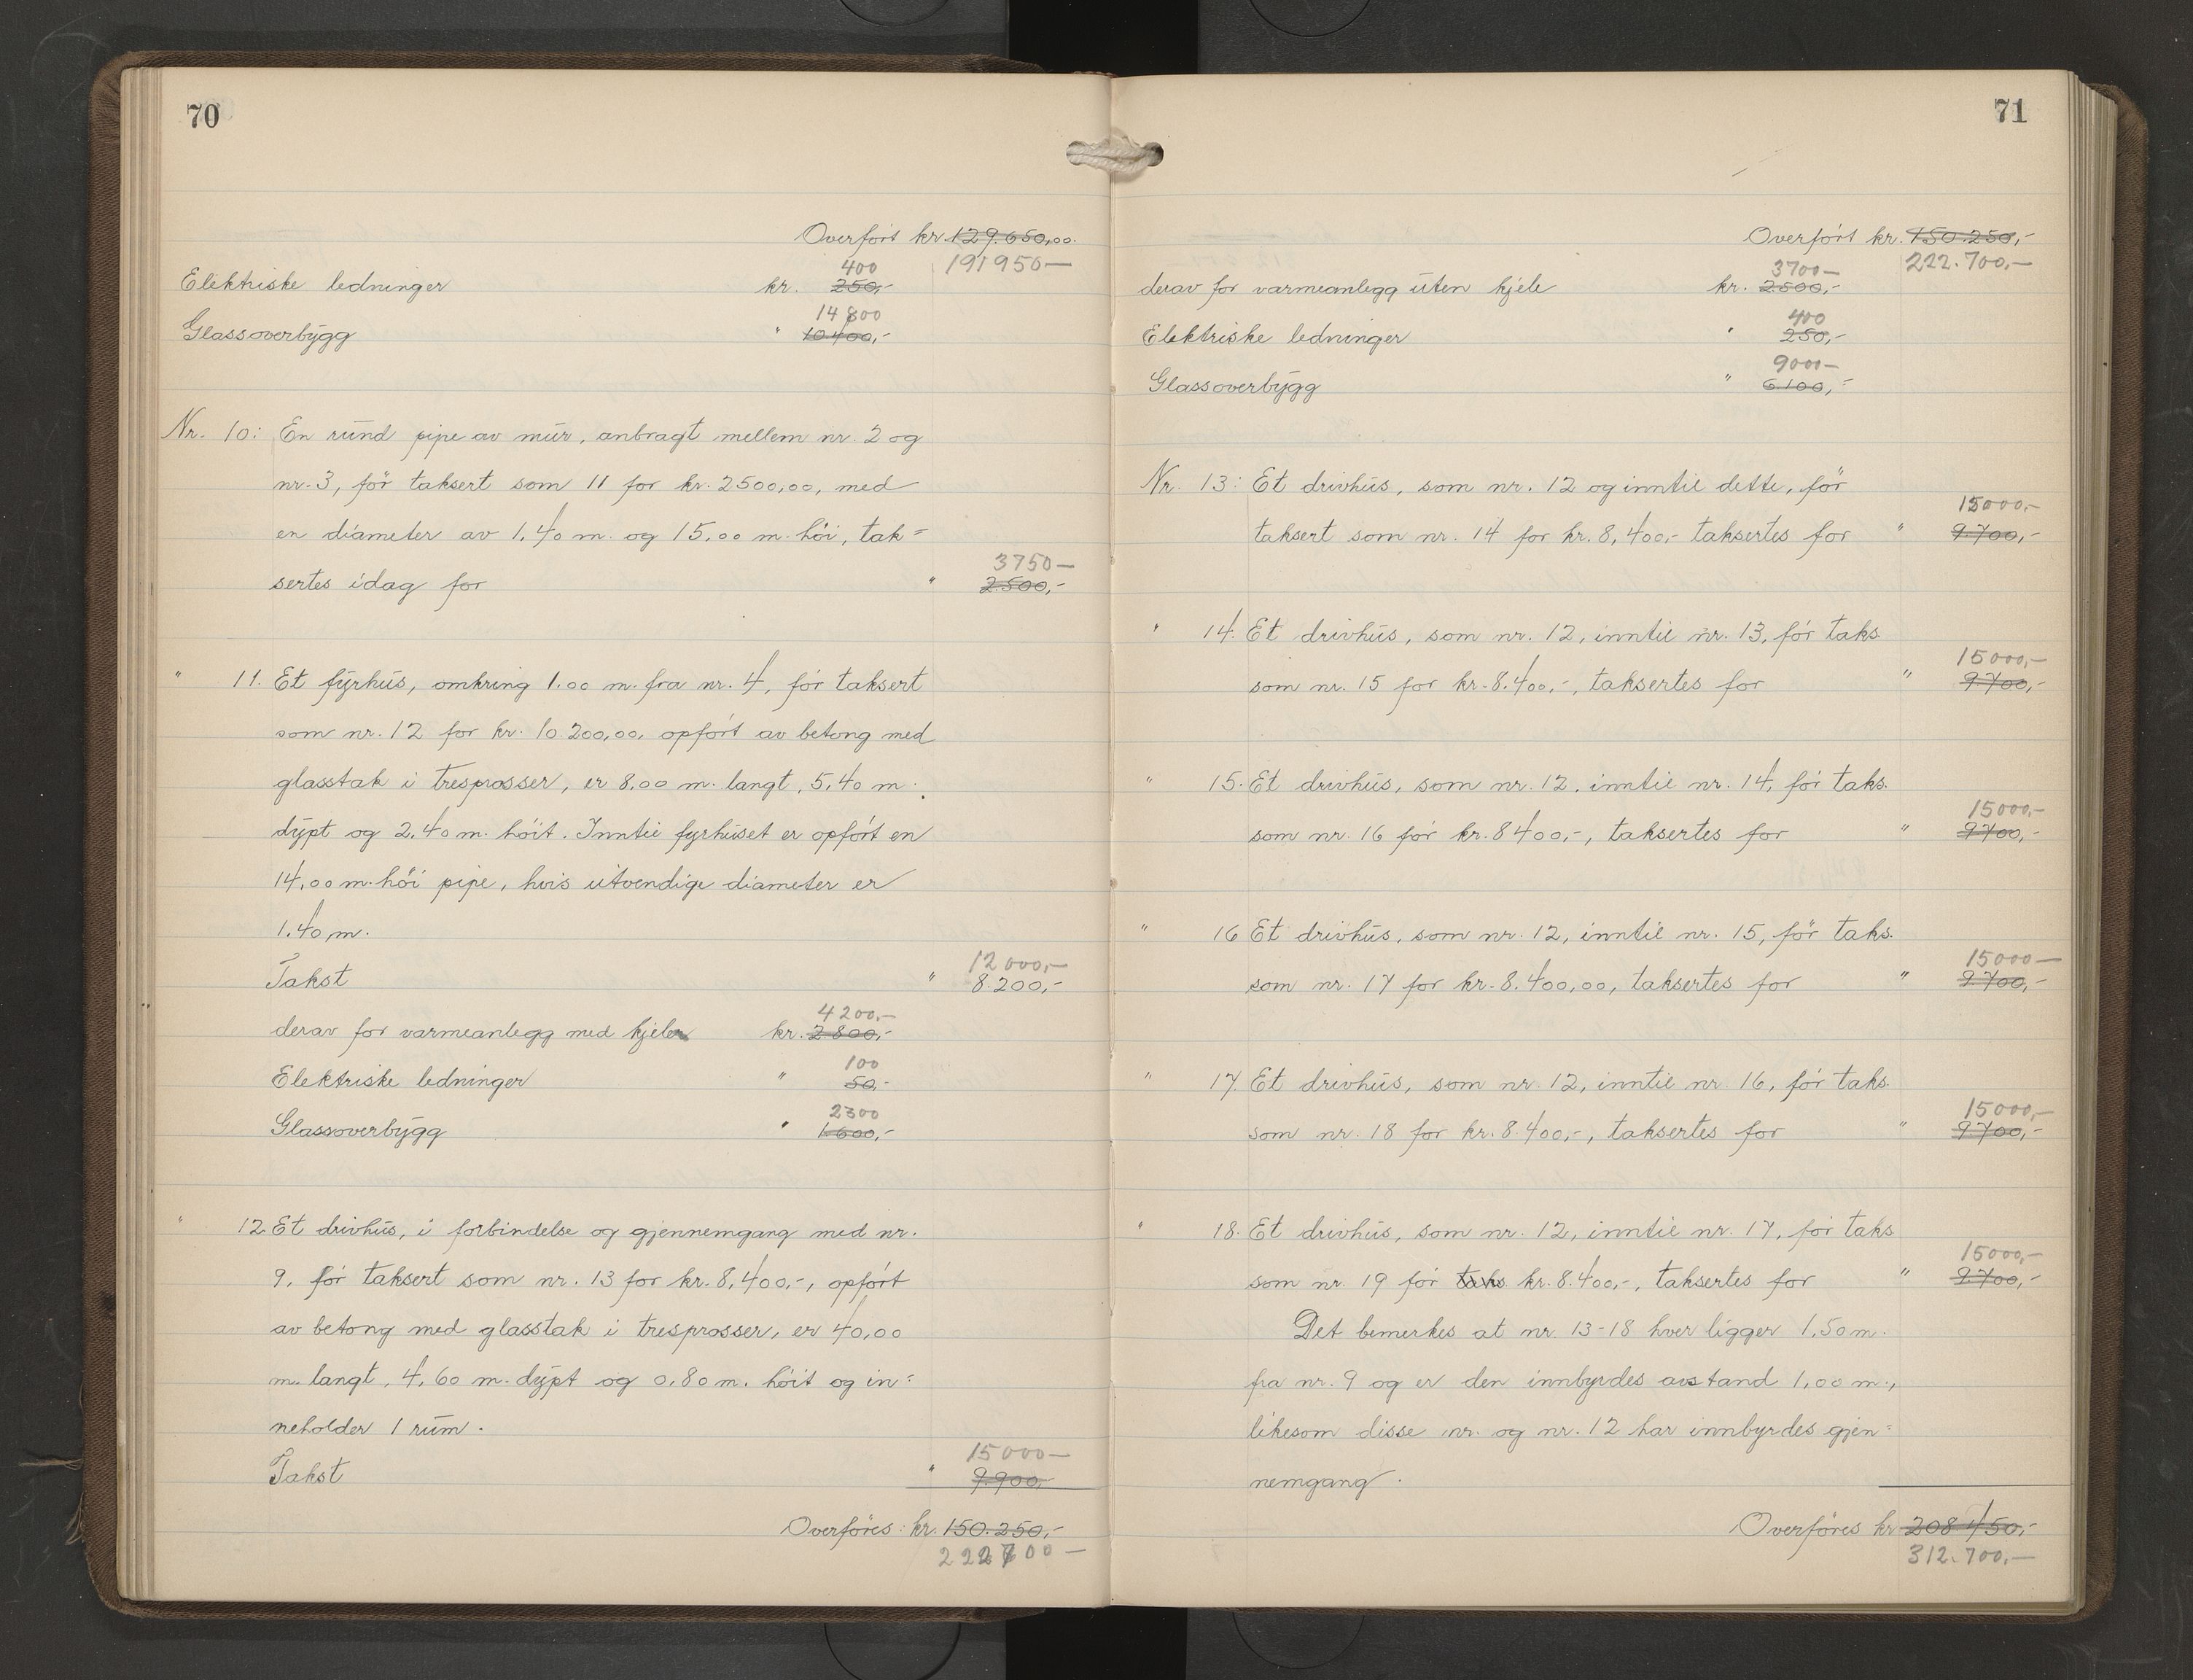 70
Overført kr. 129.650,00.
191950—
400
Elektriske ledninger kr. 250,-
14800
Glassoverbygg " 10.400,-
Nr. 10: En rund pipe av mur, anbragt mellem nr. 2 og
nr. 3, før taksert som 11 for kr. 2500,00, med
en diameter av 1,40 m. og 15,00 m. høi, tak=
3750—
sertes idag for " 2.500,-
" 11. Et fyrhus, omkring 1.00 m. fra nr. 4, før taksert
som nr. 12 for kr. 10.200,00, opført av betong med
glasstak i tresprosser, er 8,00 m. langt, 5,40 m.
dypt og 2,40 m. høit. Inntil fyrhuset er opført en
14,00 m. høi pipe, hvis utvendige diameter er
1.40 m.
12000,—
Takst " 8.200,-
4200,-
derav for varmeanlegg med kjeler kr. 2.800,-
100
Elektriske ledninger " 50,-
2300
Glassoverbygg " 1.600,-
" 12. Et drivhus, i forbindelse og gjennemgang med nr.
9, før taksert som nr. 13 for kr. 8,400,-, opført
av betong med glasstak i tresprosser, er 40,00
m. langt, 4,60 m. dypt og 0,80 m. høit og in=
neholder 1 rum.
15000—
Takst " 9.900,-
Overføres: kr. 150.250,-
222700—
71
Overført kr. 150.250,-
222.700,—
3700—
derav for varmeanlegg uten kjele kr. 2500,-
400
Elektriske ledninger " 250,-
9000—
Glassoverbygg " 6.100,-
Nr. 13: Et drivhus, som nr. 12 og inntil dette, før
15000,-
taksert som nr. 14 for kr. 8,400,- taksertes for " 9.700,-
" 14. Et drivhus, som nr. 12, inntil nr. 13, før taks.
15000,—
som nr. 15 for kr. 8.400,-, taksertes for " 9.700,-
" 15. Et drivhus, som nr. 12, inntil nr. 14, før taks.
15000,—
som nr. 16 før kr. 8400,-, taksertes for " 9.700,-
" 16 Et drivhus, som nr. 12, inntil nr. 15, før taks.
15000—
som nr. 17 for kr. 8.400,00, taksertes for " 9.700,-
" 17. Et drivhus, som nr. 12, inntil nr. 16, før taks.
15000,—
som nr. 18 for kr. 8.400,-, taksertes for " 9.700,-
" 18. Et drivhus, som nr. 12, inntil nr. 17, før taks
15000,—
som nr. 19 før taks kr. 8.400,-, taksertes for " 9.700,-
Det bemerkes at nr. 13-18 hver ligger 1,50 m.
fra nr. 9 og er den innbyrdes avstand 1,00 m.,
likesom disse nr. og nr. 12 har innbyrdes gjen=
nemgang.
Overføres kr 208.450,-
312.700,—